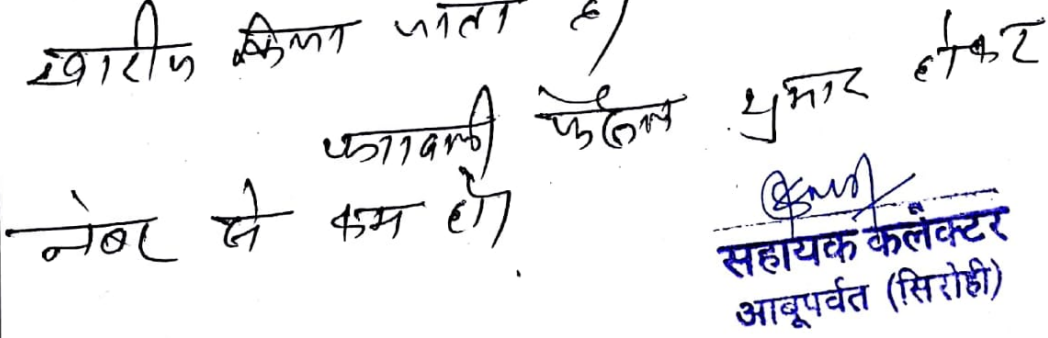 खारीज किया जाता है।
पत्रावली फैसल शुमार होकर
नंबर से कम हो।
सहायक कलेक्टर
आबूपर्वत (सिरोही)